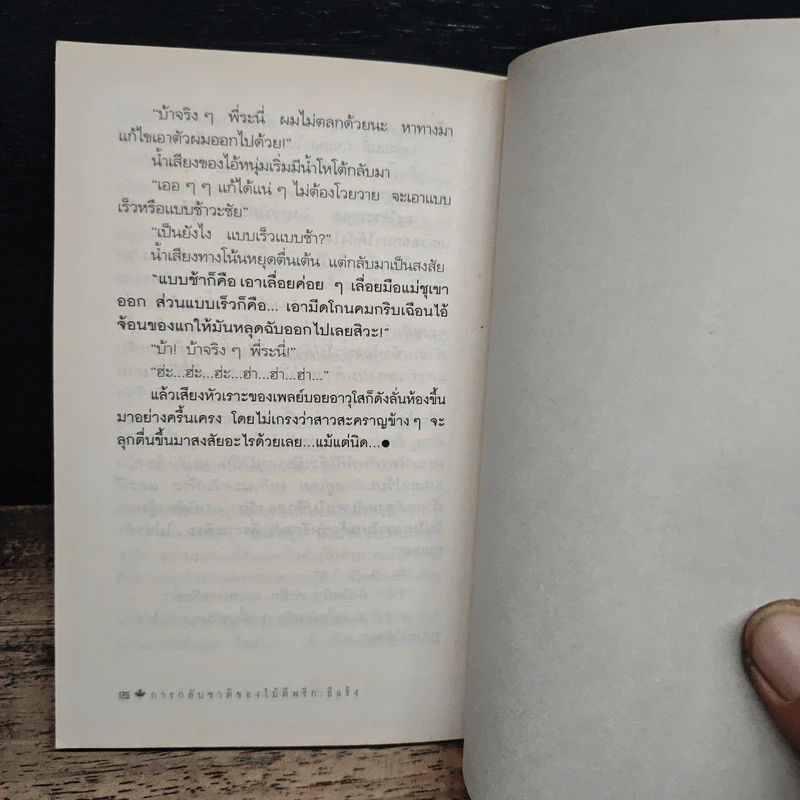 "บ้าจริง ๆ พี่ระนี่ ผมไม่ตลกด้วยนะ หาทางมา
แก้ไขเอาตัวผมออกไปด้วย!"
น้ำเสียงของไอ้หนุ่มเริ่มมีน้ำโหโต้กลับมา
"เออ ๆ ๆ แก้ได้แน่ ๆ ไม่ต้องโวยวาย จะเอาแบบ
เร็วหรือแบบช้าวะชัย"
"เป็นยังไง แบบเร็วแบบช้า?"
น้ำเสียงทางโน้นหยุดตื่นเต้น แต่กลับมาเป็นสงสัย
"แบบช้าก็คือ เอาเลื่อยค่อย ๆ เลื่อยมือแม่ชุเขา
ออก ส่วนแบบเร็วก็คือ... เอามีดโกนคมกริบเฉือนไอ้
จ้อนของแกให้มันหลุดฉับออกไปเลยสิวะ!"
"บ้า! บ้าจริง ๆ พี่ระนี่!"
"ฮ่ะ...ฮ่ะ...ฮ่ะ...ฮ่า...ฮ่า...ฮ่า..."
แล้วเสียงหัวเราะของเพลย์บอยอาวุโสก็ดังลั่นห้องขึ้น
มาอย่างครื้นเครง โดยไม่เกรงว่าสาวสะคราญข้าง ๆ จะ
ลุกตื่นขึ้นมาสงสัยอะไรด้วยเลย...แม้แต่นิด...●
การกลับชาติของไม้ตีพริก:อีแร้ง